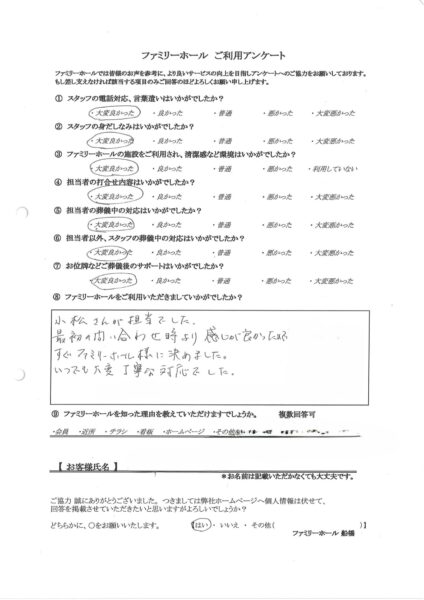 ファミリーホール ご利用アンケート
ファミリーホールでは皆様のお声を参考に、より良いサービスの向上を目指しアンケートへのご協力をお願いしております。
もし差し支えなければ該当する項目のみご回答のほどよろしくお願い申し上げます。
① スタッフの電話対応、言葉遣いはいかがでしたか?
・大変良かった ・良かった ・普通 ・悪かった ・大変悪かった
② スタッフの身だしなみはいかがでしたか?
・大変良かった ・良かった ・普通 ・悪かった ・大変悪かった
③ ファミリーホールの施設をご利用され、清潔感など環境はいかがでしたか?
・大変良かった ・良かった ・普通 ・悪かった ・利用していない
④ 担当者の打合せ内容はいかがでしたか?
・大変良かった ・良かった ・普通 ・悪かった ・大変悪かった
⑤ 担当者の葬儀中の対応はいかがでしたか?
・大変良かった ・良かった ・普通 ・悪かった ・大変悪かった
⑥ 担当者以外、スタッフの葬儀中の対応はいかがでしたか?
・大変良かった ・良かった ・普通 ・悪かった ・大変悪かった
⑦ お位牌などご葬儀後のサポートはいかがでしたか?
・大変良かった ・良かった ・普通 ・悪かった ・大変悪かった
⑧ ファミリーホールをご利用いただきましていかがでしたか?
小松さんが担当でした。
最初の問い合わせ時より感じが良かった為
すぐファミリーホール様に決めました。
いつでも大変丁寧な対応でした。
⑨ ファミリーホールを知った理由を教えていただけますでしょうか。 複数回答可
・会員 ・近所 ・チラシ ・看板 ・ホームページ ・その他
【 お客様氏名 】
*お名前は記載いただかなくても大丈夫です。
ご協力 誠にありがとうございました。つきましては弊社ホームページへ個人情報は伏せて、
回答を掲載させていただきたいと思いますがよろしいでしょうか?
どちらかに、〇をお願いいたします。 【はい ・ いいえ ・ その他( )】
ファミリーホール 船橋